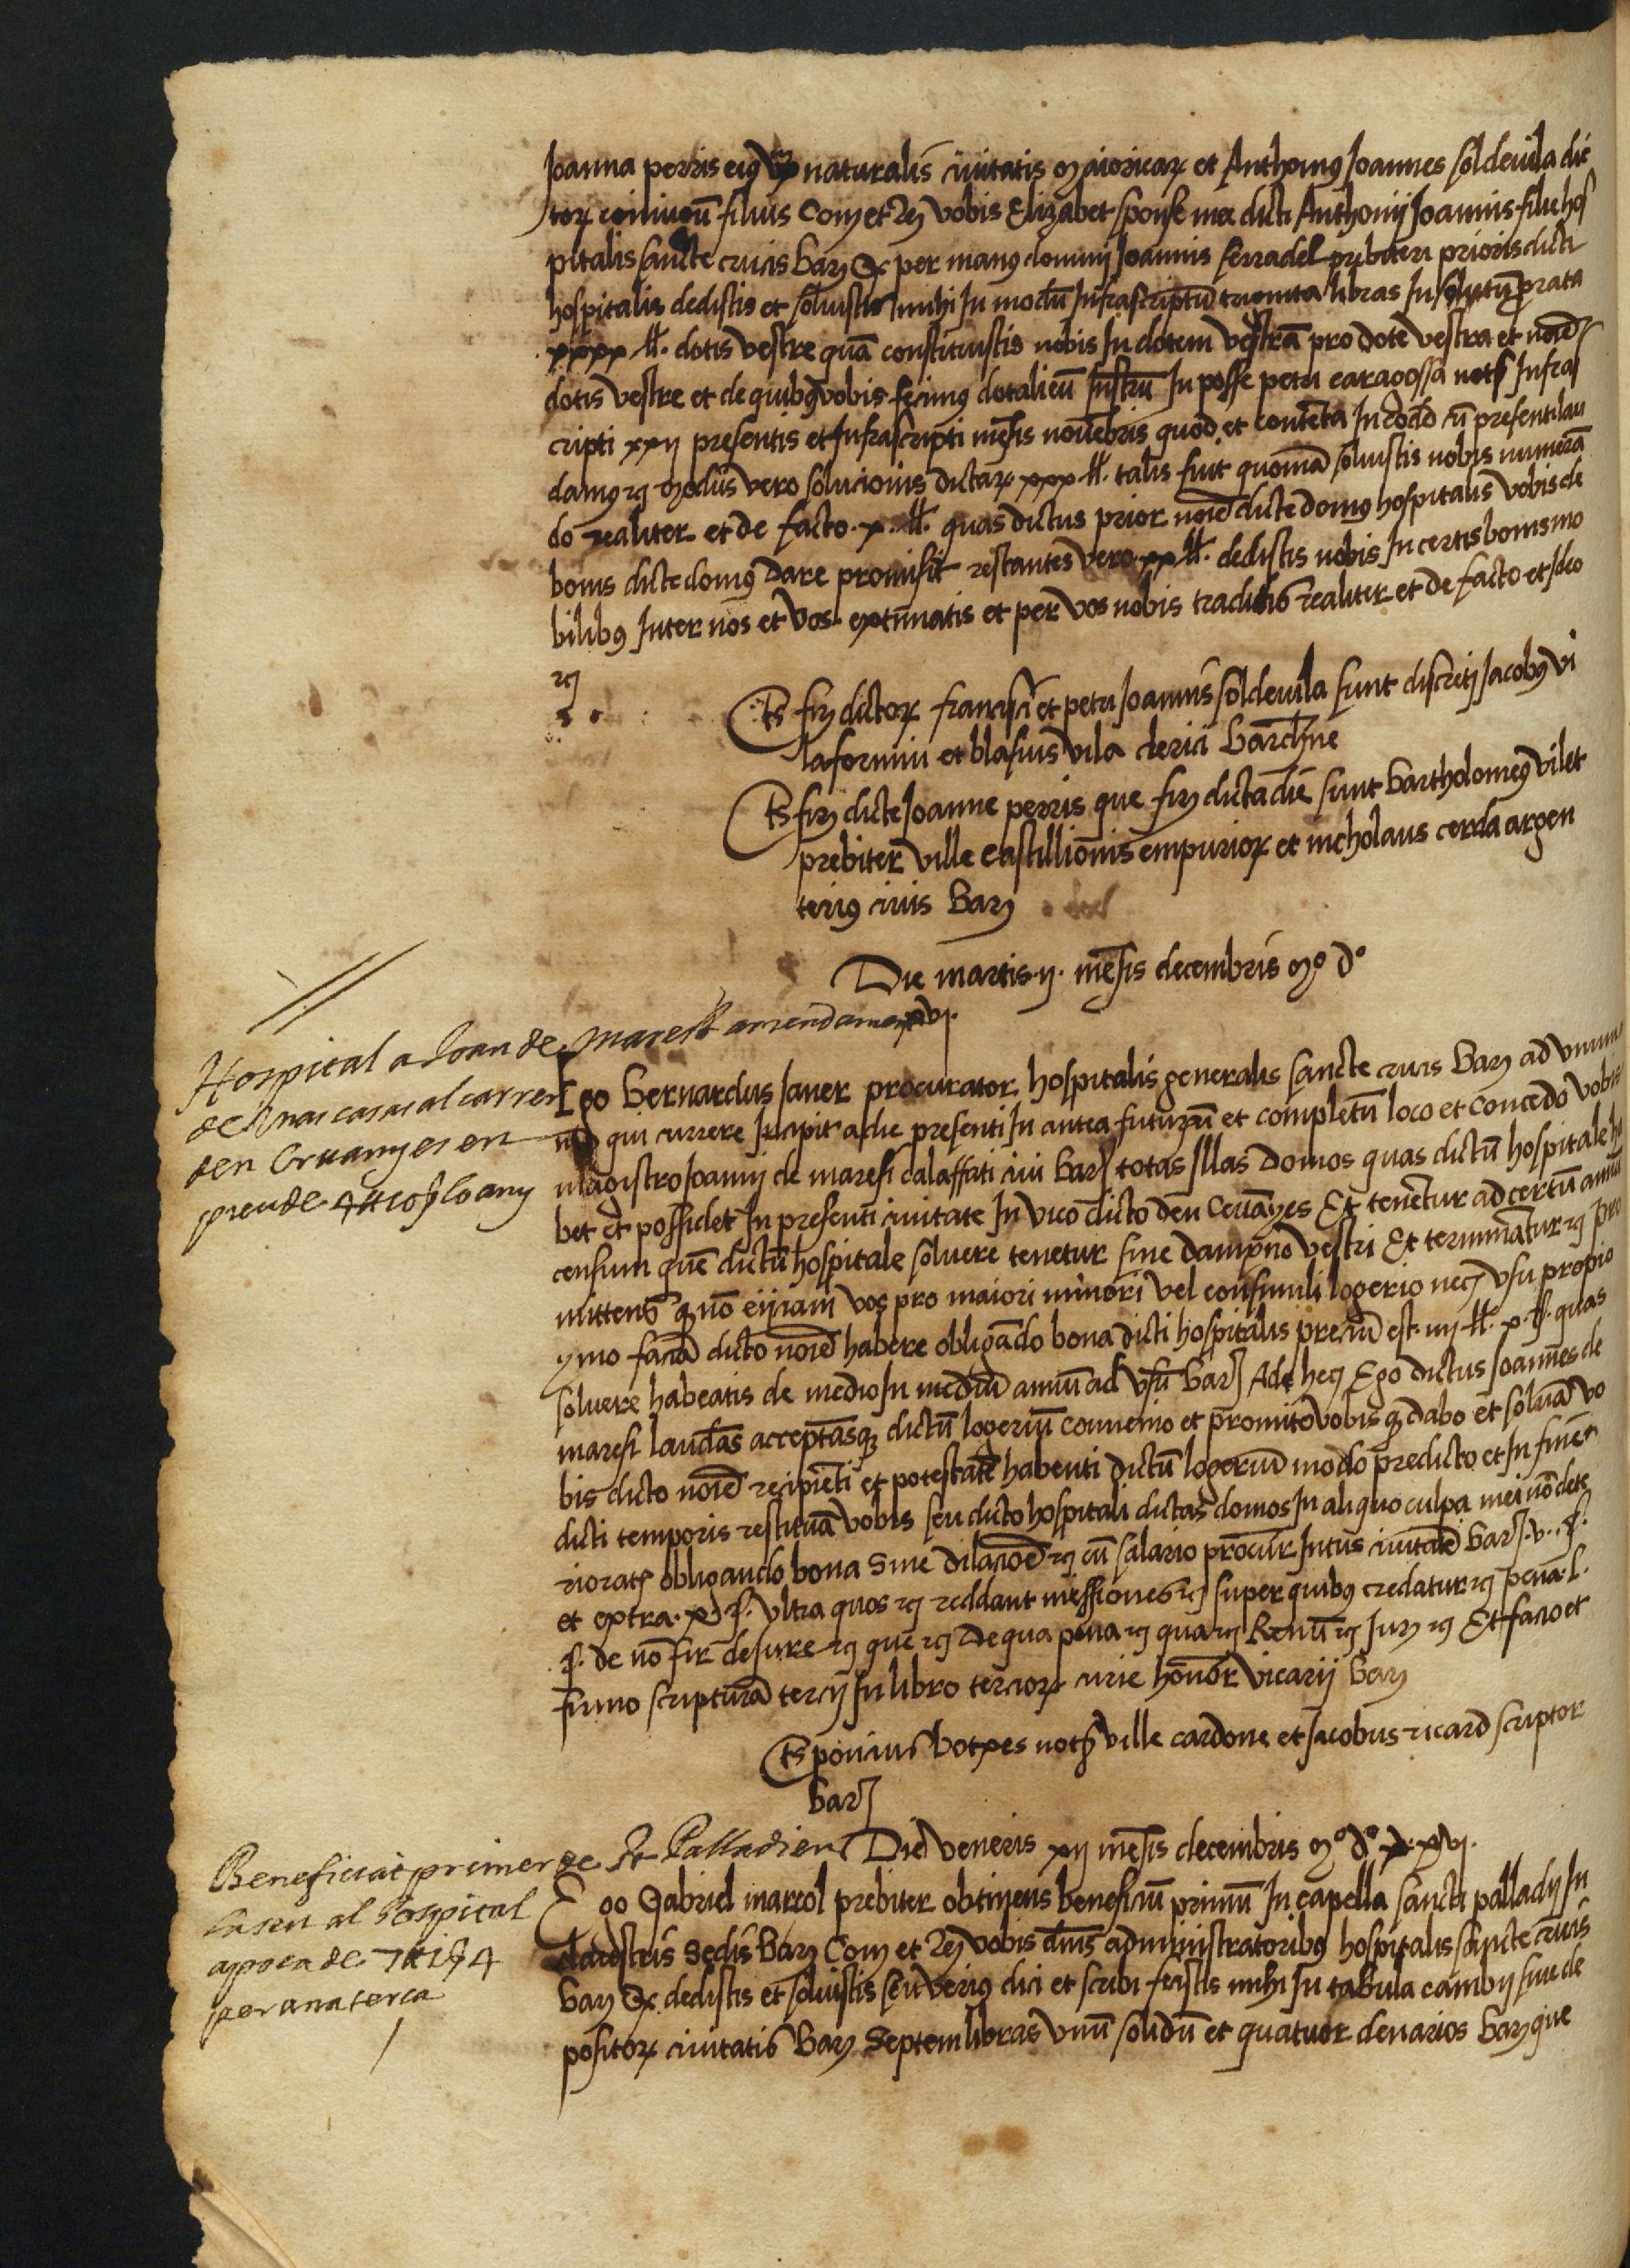 Joanna perris eius uxor naturalis civitatis Maioricarꝝ et Anthonius Joannes soldevila dic
torꝝ coniugū filius Com et Reg vobis Elizabet sponse mee dicti Anthonij Joannis filie hos
pitalis sancte crucis barꝫ Qꝫ per manus dominij Joannis ferradel prebiteri prioris dicti
hospitalis dedistis et solvistis mihi In modū Infrascriptū triginta libras In solutū prorata
xxxx ll. dotis vestre quā constituistis nobis In dotem vestrā pro dote vestra et noīe
dotis vestre et de quibus vobis fecimus dotaliciū Instrū In posse petri caragossa notꝭ Infras
cripti xxij presentis et Infrascripti mēsis novēbris quod et contēta In eodē cū presenti lau
damus ꝛc modus vero solucionis dictarꝝ xxx ll. talis fuit quoniā solvistis nobis numerā
do realiter et de facto .x. ll. quas dictus prior noīe dicte domus hospitalis vobis de
bonis dicte domus dare promisit restantes vero xx ll. dedistis nobis In certis bonis mo
bilibus Inter nos et vos extimatis et per vos nobis traditis realiter et de facto et Ideo
ꝛc
Ts firꝫ dictorꝝ francisci et petri Joannis soldevila sunt discreti Jacobus vi
laformiu et blasius vila clerici barchne
Ts firꝫ dicte Joanne perris que firꝫ dicta die sunt bartholomeus vilet
prebiter ville castillionis empuriorꝝ et nicholaus cerda argen
terius civis barꝫ
Die martis .ij. mēsis decembris Mº dº
xxvj.
Hospital a Joan de Maresi arrendament
de unas casas al carrer
den Cruanyes en
preu de 4 ll 10 s lo any
Ego bernardus Janer procurator hospitalis generalis sancte crucis barꝫ ad unum
annū qui currere Incipit a die presenti In antea futurū et completū loco et concedo vobis
magistro Joannj de maresi calaffati civi barꝫ totas Illas domos quas dictū hospitale ha
bet et possidet In presenti civitate In vico dicto den Cruāyes Et tenētur ad certū annū
censum quē dictū hospitale solvere tenetur sine dampno vestri Et terminātur ꝛc pro
mittens qꝫ nō eijciam vos pro maiori minori vel consimili logerio necꝫ usu propio
ymo faciā dicto noīe habere obligādo bona dicti hospitalis preciū est .iiij ll. x. s. quas
solvere habeatis de medio In mediū annū ad usū barꝫ Ad hec Ego dictus Joannes de
maresi laudās acceptāsqꝫ dictū logeriū convenio et promito vobis qꝫ dabo et solvā vo
bis dicto noīe recipiēti et potestatē habenti dictū logeriū modo predicto et In finem
dicti temporis restituā vobis seu dicto hospitali dictas domos In aliquo culpa mei nō dete
rioratꝭ obligando bona sine dilacioē ꝛc cū salario procur Intus civitatē barꝫ .v. s.
et extra .x. s. ultra quos ꝛc reddant missiones ꝛc super quibus credatur ꝛc pena .L.
s. de nō fir de Jure ꝛc que ꝛc de qua pena ꝛc qua ꝛc Renū ꝛc Jurꝫ ꝛc Et facio et
firmo scripturā tercij In libro terciorꝝ curie honor vicarij barꝫ
Ts poncius botxes notꝭ ville cardone et Jacobus ricard scriptor
barꝫ
Die veneris xij mēsis decembris Mº dº x xvj.
Beneficiat primer de St Palladi en
la seu al hospital
apoca de 7 ll 1 s 4
per una terca
Ego Gabriel marcol prebiter obtinens beneficiū primū In capella sancti palladij In
claustris sedis barꝫ Com et Reg vobis dnis administratoribus hospitalis sancte crucis
barꝫ Qꝫ dedistis et solvistis seu verius dici et scribi fecistis mihi In tabula cambij sive de
positorꝝ civitatis barꝫ septem libras unū solidū et quatuor denarios barꝫ que